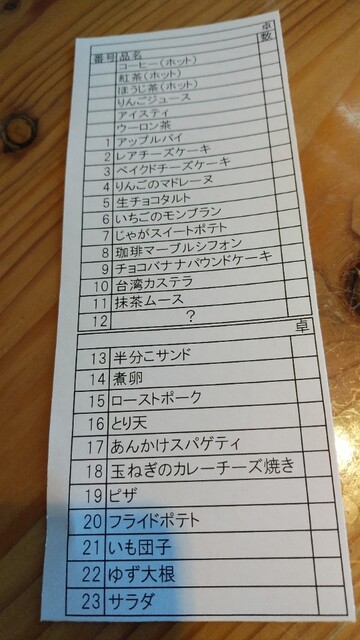 卓
番号 品名 数
コーヒー(ホット)
紅茶(ホット)
ほうじ茶(ホット)
りんごジュース
アイスティ
ウーロン茶
1 アップルパイ
2 レアチーズケーキ
3 ベイクドチーズケーキ
4 りんごのマドレーヌ
5 生チョコタルト
6 いちごのモンブラン
7 じゃがスイートポテト
8 珈琲マーブルシフォン
9 チョコバナナパウンドケーキ
10 台湾カステラ
11 抹茶ムース
12 ?
卓
13 半分こサンド
14 煮卵
15 ローストポーク
16 とり天
17 あんかけスパゲティ
18 玉ねぎのカレーチーズ焼き
19 ピザ
20 フライドポテト
21 いも団子
22 ゆず大根
23 サラダ